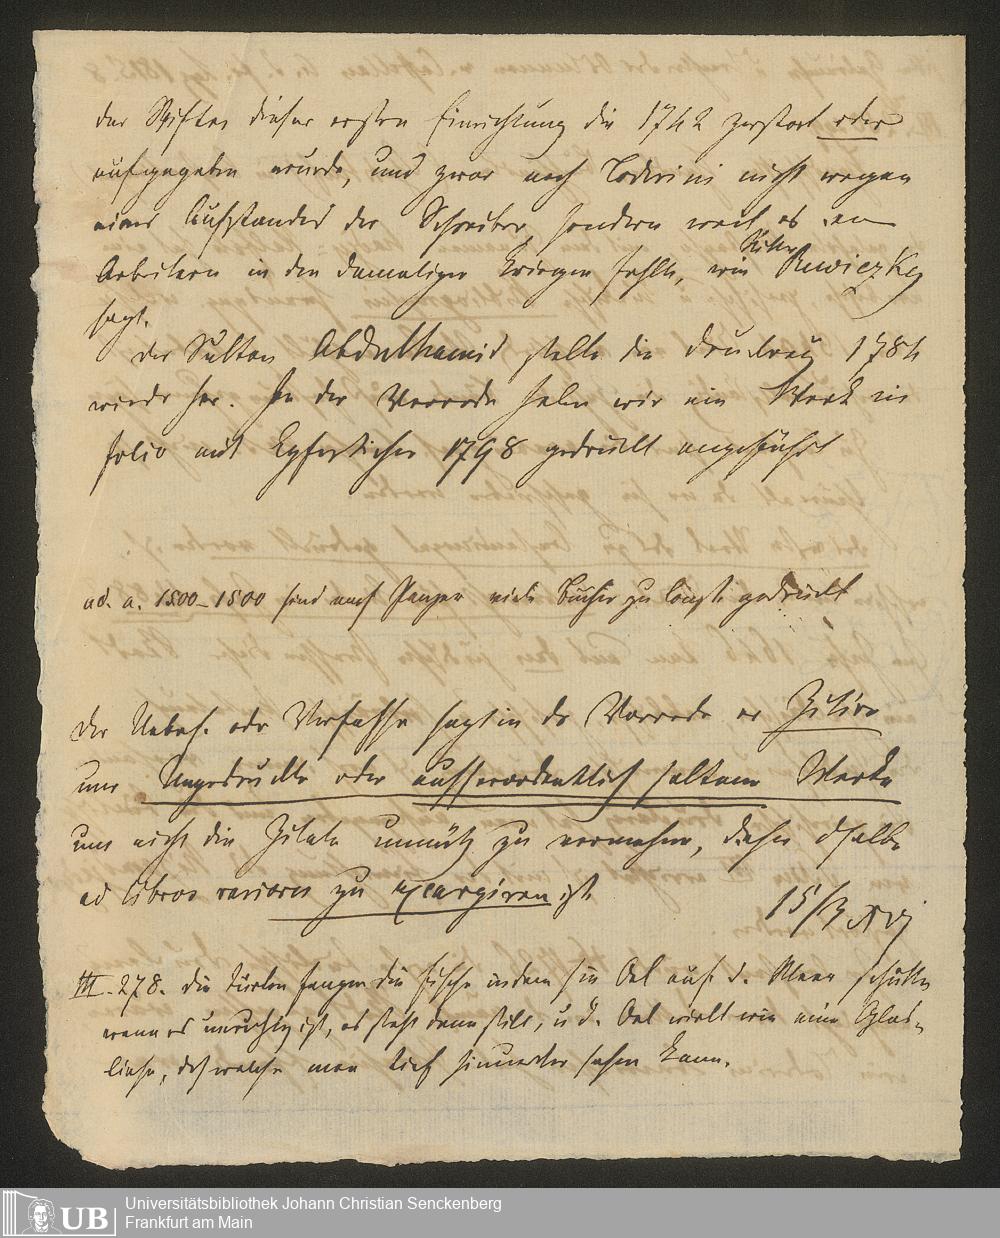 der Stifter dieser ersten Einrichtung die 1742 zerstört oder
aufgegeben wurde, und zwar nach Toderini nicht wegen
eines Aufstandes der Schreiber, sondern weil es an
Arbeitern in den damaligen Kriegen fehlte, wie Ritter Rewiczky
sagt.
Der Sultan Abdulhamid stellte die Druckerey 1784
wieder her. In der Vorrede sehen wir ein Werk in
folio mit Kupferstichen 1798 gedruckt angeführt
ad. a. 1500–1800 sind nach Panzer viele Bücher zu gedruckt
Der Uebers. oder Verfasser sagt in der Vorrede er Zitire
nur Ungedruckte oder ausserordentlich seltene Werke
um nicht die Zitate unnütz zu vermehren, daher dselbe
ad libros rariores zu excerpiren ist
15/3 xvj
III. 278. die Türken fangen die Fische indem sie Oel auf d. Meer schütten
wenn es unruhig ist, es steht dann still, u. d. Oel wirkt wie eine Glas-
linse, dch welche man tief hinunter sehen kann.
UB
Universitätsbibliothek Johann Christian Senckenberg
Frankfurt am Main